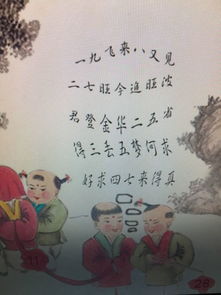 一九飞来八又见
二七旺今進旺波
君登金华二五省
得三丢五梦何求
好求四七来得真
28